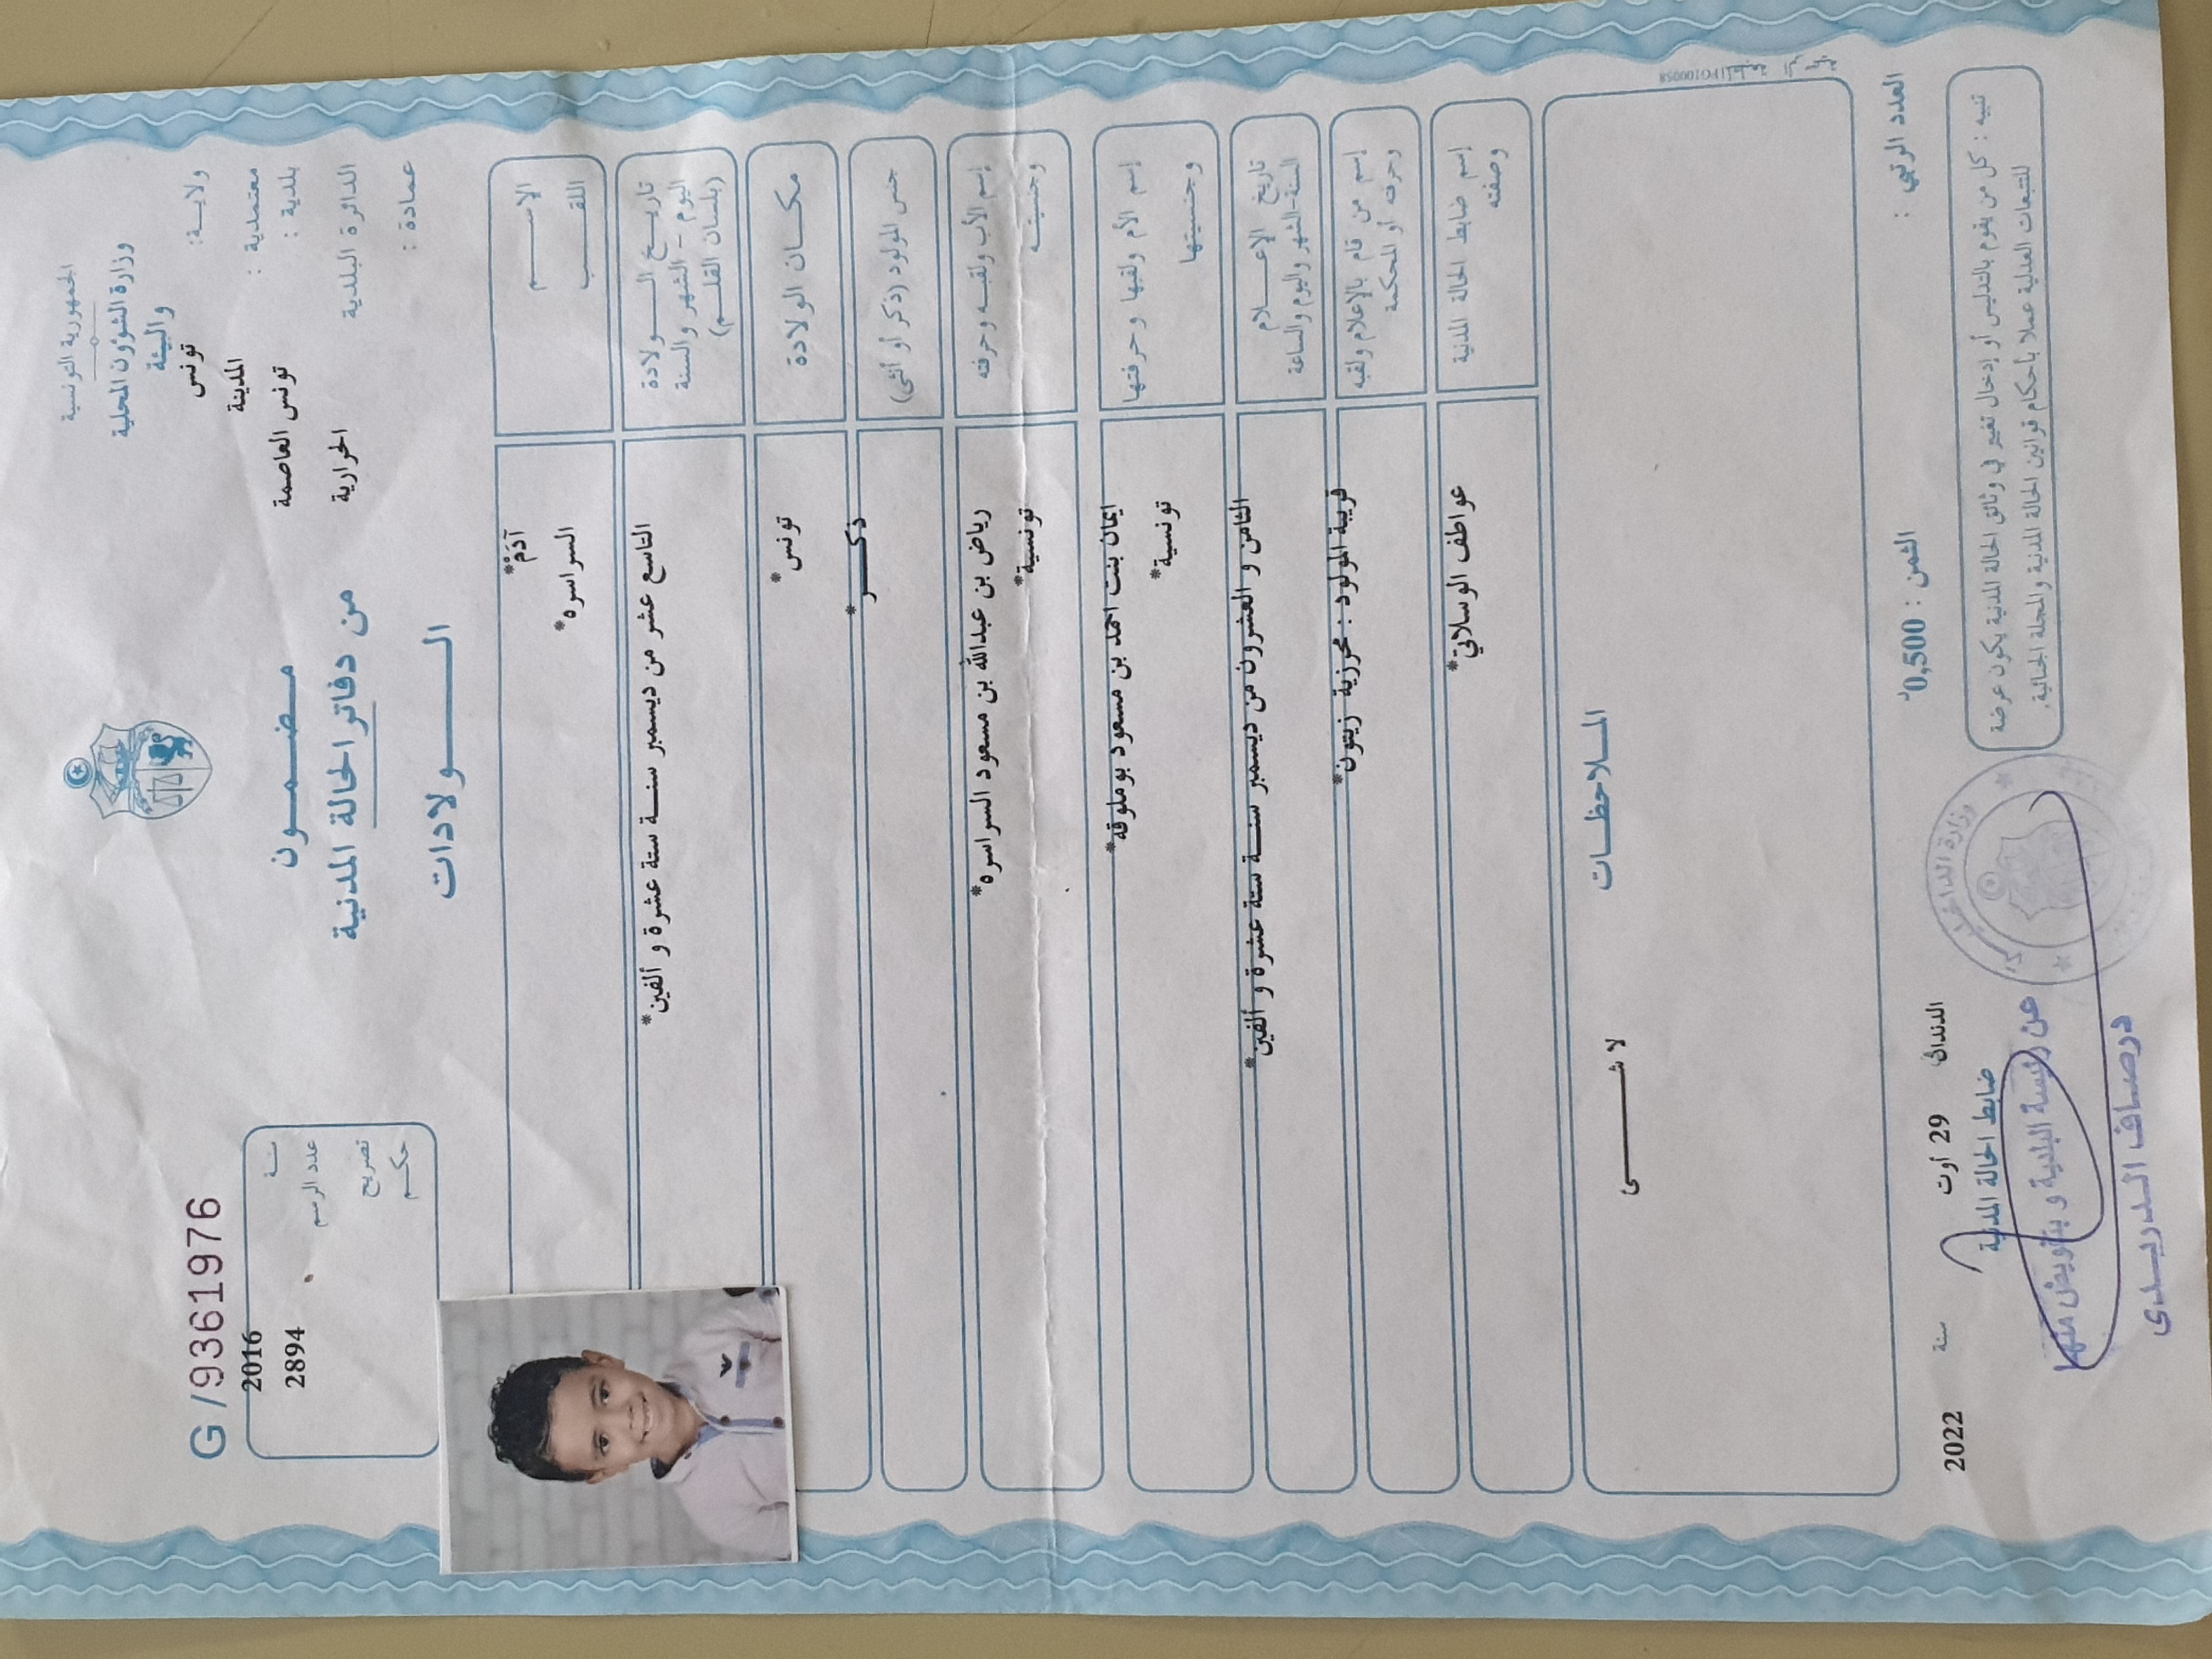 الجمهورية التونسية
وزارة الشؤون المحلية
والبيئة
ولايـــة: تونس
معتمدية : المدينة
بلدية : تونس العاصمة
الدائرة البلدية الحرارية
عمادة :
مـضـمـون
من دفاتر الحالة المدنية
الـولادات
G /9361976
سنـة 2016
عدد الرسم 2894
تصريح
حكـم
الإســـم آدَمْ*
اللقـــب السراسره*
تاريـخ الـــولادة
اليوم - الشهر والسنة
(بلسان القلـــم)
التاسع عشر من ديسمبر سنـــة ستة عشرة و ألفين*
مكـــان الولادة تونس*
جنس المولود (ذكر أو أنثى) ذكـــر*
إسم الأب ولقبـه وحرفته رياض بن عبدالله بن مسعود السراسره*
وجنسيتـه تونسية*
إسم الأم ولقبها وحرفتها ايمان بنت احمد بن مسعود بوملوقه*
وجنسيتها تونسية*
تاريخ الإعـــلام
السنة-الشهر واليوم والساعة
الثامن و العشرون من ديسمبر سنـــة ستة عشرة و ألفين*
إسم من قام بالإعلام ولقبه
وحرفته أو المحكمة
قريبة المولود : محرزية زيتون*
إسم ضابط الحالة المدنية
وصفته
عواطف الوسلاتي*
المـلاحظـات
لا شـــــئ
العدد الرتبي :
الثمن : 0,500د
الدنداني 29 أوت سنة 2022
ضابط الحالة المدنية
تنبيه : كل من يقوم بالتدليس أو إدخال تغيير في وثائق الحالة المدنية يكون عرضة
للتتبعات العدلية عملا بأحكام قوانين الحالة المدنية والمجلة الجنائية.
وزارة الداخلية
عن رئيسة البلدية و بتفويض منها
درصـاف الـدريـدي